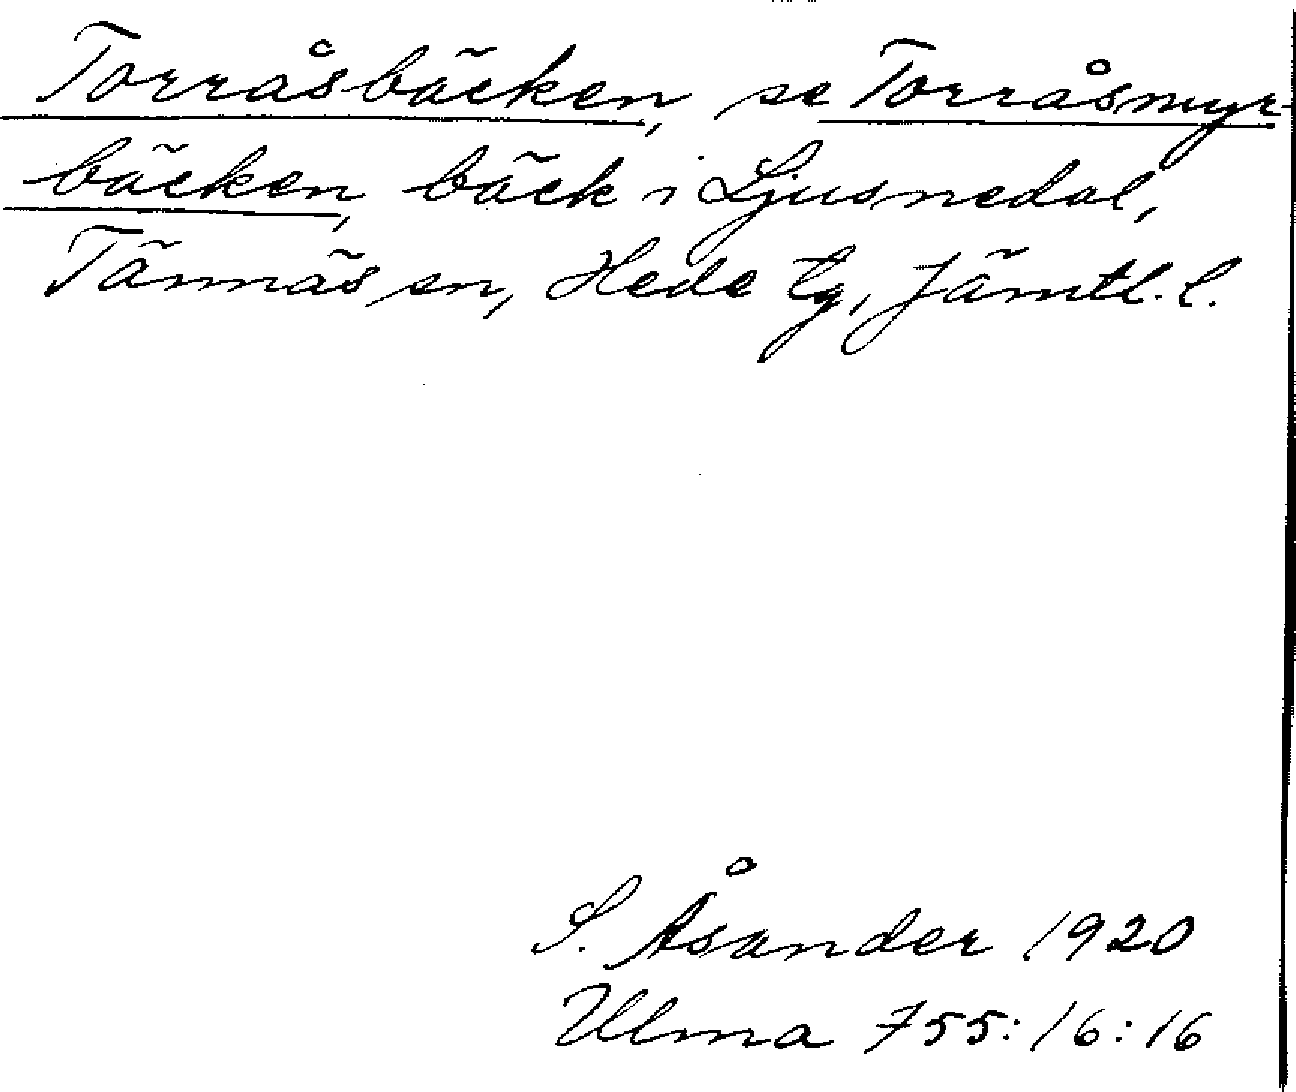 Torråsbäcken, se Torråsmyr-
bäcken, bäck i Ljusnedal,
Tännäs sn, Hede tg, Jämtl. l.
S. Åsander 1920
Ulma 755:16:16